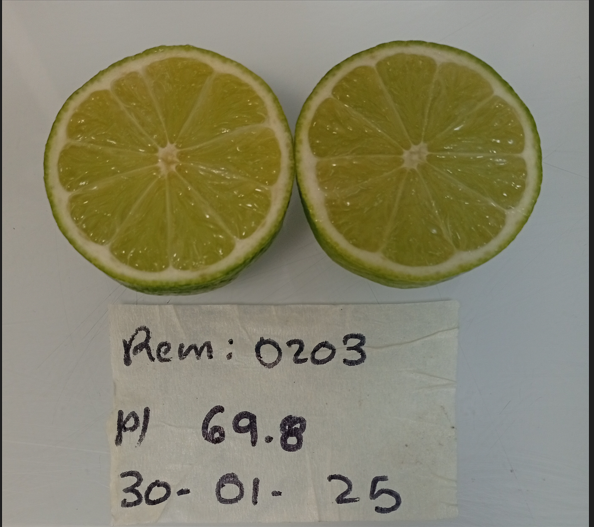 Rem: 0203
P/ 69.8
30- 01- 25